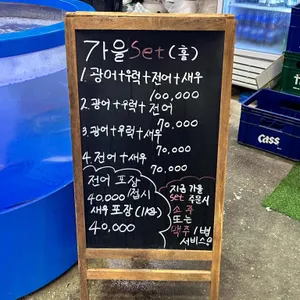 가을 Set (홍)
1. 광어+우럭+전어+새우
100,000
2. 광어+우럭+전어
70,000
3. 광어+우럭+새우
70,000
4. 전어+새우
70,000
전어 포장
40,000/접시
새우 포장 (1kg)
40,000
지금 가을
Set 주문시
소주
또는
맥주 1병
서비스
Cass
Cass